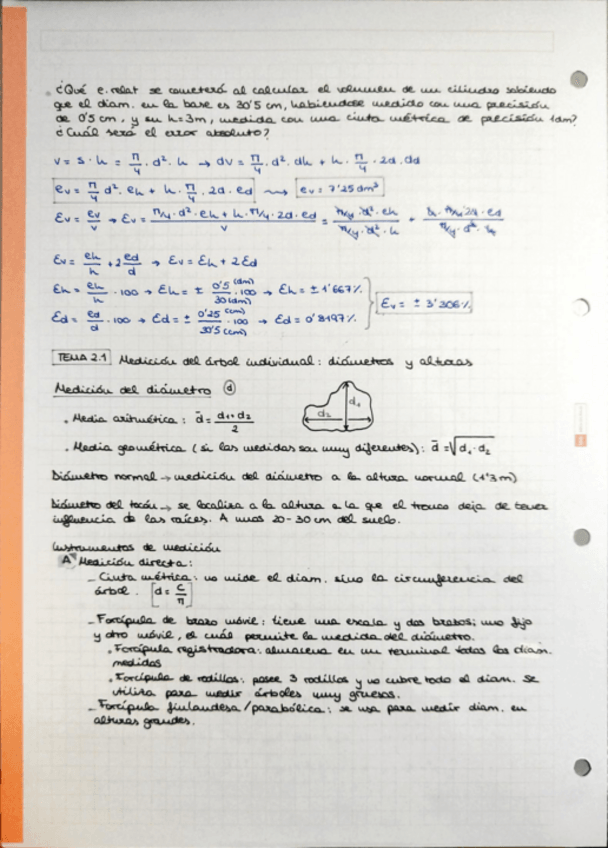 ¿Qué e. relat se cometerá al calcular el volumen de un cilindro sabiendo
que el diam. en la base es 30'5 cm, habiendose medido con una precisión
de 0'5 cm, y su h=3m, medida con una cinta métrica de precisión 1dm?
¿Cuál será el error absoluto?
V = S · h = π/4 · d² · h → dV = π/4 · d² · dh + h · π/4 · 2d · dd
ev = π/4 d² · eh + h · π/4 · 2d · ed ⟿ ev = 7'25 dm³
Ev = ev/v → Ev = π/4 · d² · eh + h · π/4 · 2d · ed / v = π/4 · d² · eh / π/4 · d² · h + h · π/4 · 2d · ed / π/4 · d² · h
Ev = eh/h + 2 ed/d → Ev = Eh + 2Ed
Eh = eh/h · 100 → Eh = ± 0'5 (dm)/30 (dm) · 100 → Eh = ± 1'667%
Ed = ed/d · 100 → Ed = ± 0'25 (cm)/30'5 (cm) · 100 → Ed = 0'8197%
Ev = ± 3'306%
TEMA 2.1 Medición del árbol individual: diámetros y alturas
Medición del diámetro (d)
. Media aritmética: d̄ = d1+d2/2
d2 d1
. Media geométrica (si las medidas son muy diferentes): d̄ = √d1 · d2
Diámetro normal → medición del diámetro a la altura normal (1'3m)
Diámetro del tocón → se localiza a la altura a la que el tronco deja de tener
influencia de las raíces. A unos 20-30 cm del suelo.
Instrumentos de medición
A Medición directa:
_ Cinta métrica: no mide el diam. sino la circunferencia del
árbol. [d = C/π]
_ Forcípula de brazo móvil: tiene una escala y dos brazos; uno fijo
y otro móvil, el cuál permite la medida del diámetro.
. Forcípula registradora: almacena en un terminal todos los diam.
medidos
. Forcípula de rodillos: posee 3 rodillos y no cubre todo el diam. Se
utiliza para medir árboles muy gruesos.
_ Forcípula finlandesa/parabólica: se usa para medir diam. en
alturas grandes.